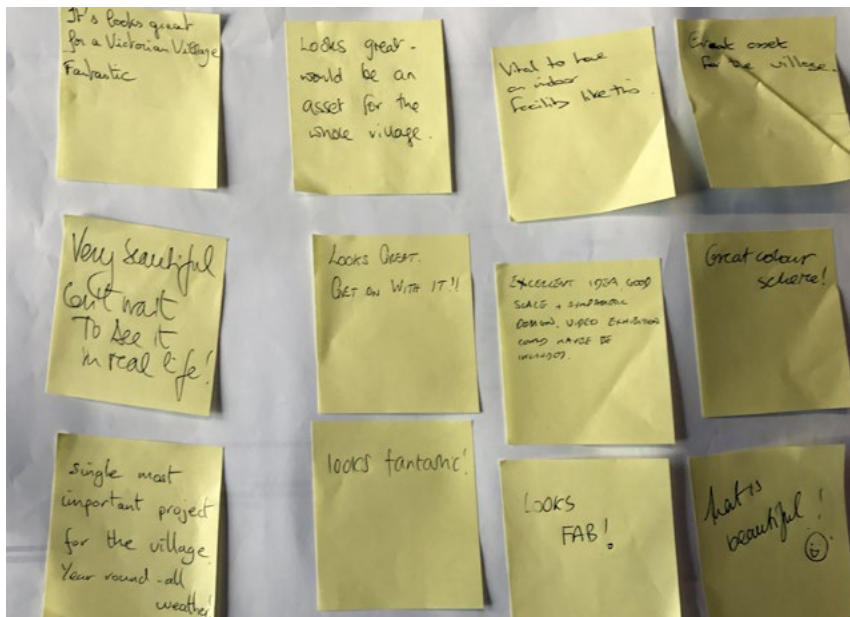 It's looks great
for a Victorian Village
Fantastic
Looks great -
would be an
asset for the
whole village.
Vital to have
an indoor
facility like this.
Great asset
for the village.
Very beautiful
Can't wait
To see it
in real life!
LOOKS GREAT.
GET ON WITH IT!!
EXCELLENT IDEA, GOOD
SCALE + SYMPATHETIC
DESIGN. VIDEO EXHIBITION
COULD MAYBE BE
INCLUDED.
Great colour
scheme!
Single most
important project
for the village.
Year round - all
weather!
looks fantastic!
LOOKS
FAB!
that is
beautiful!